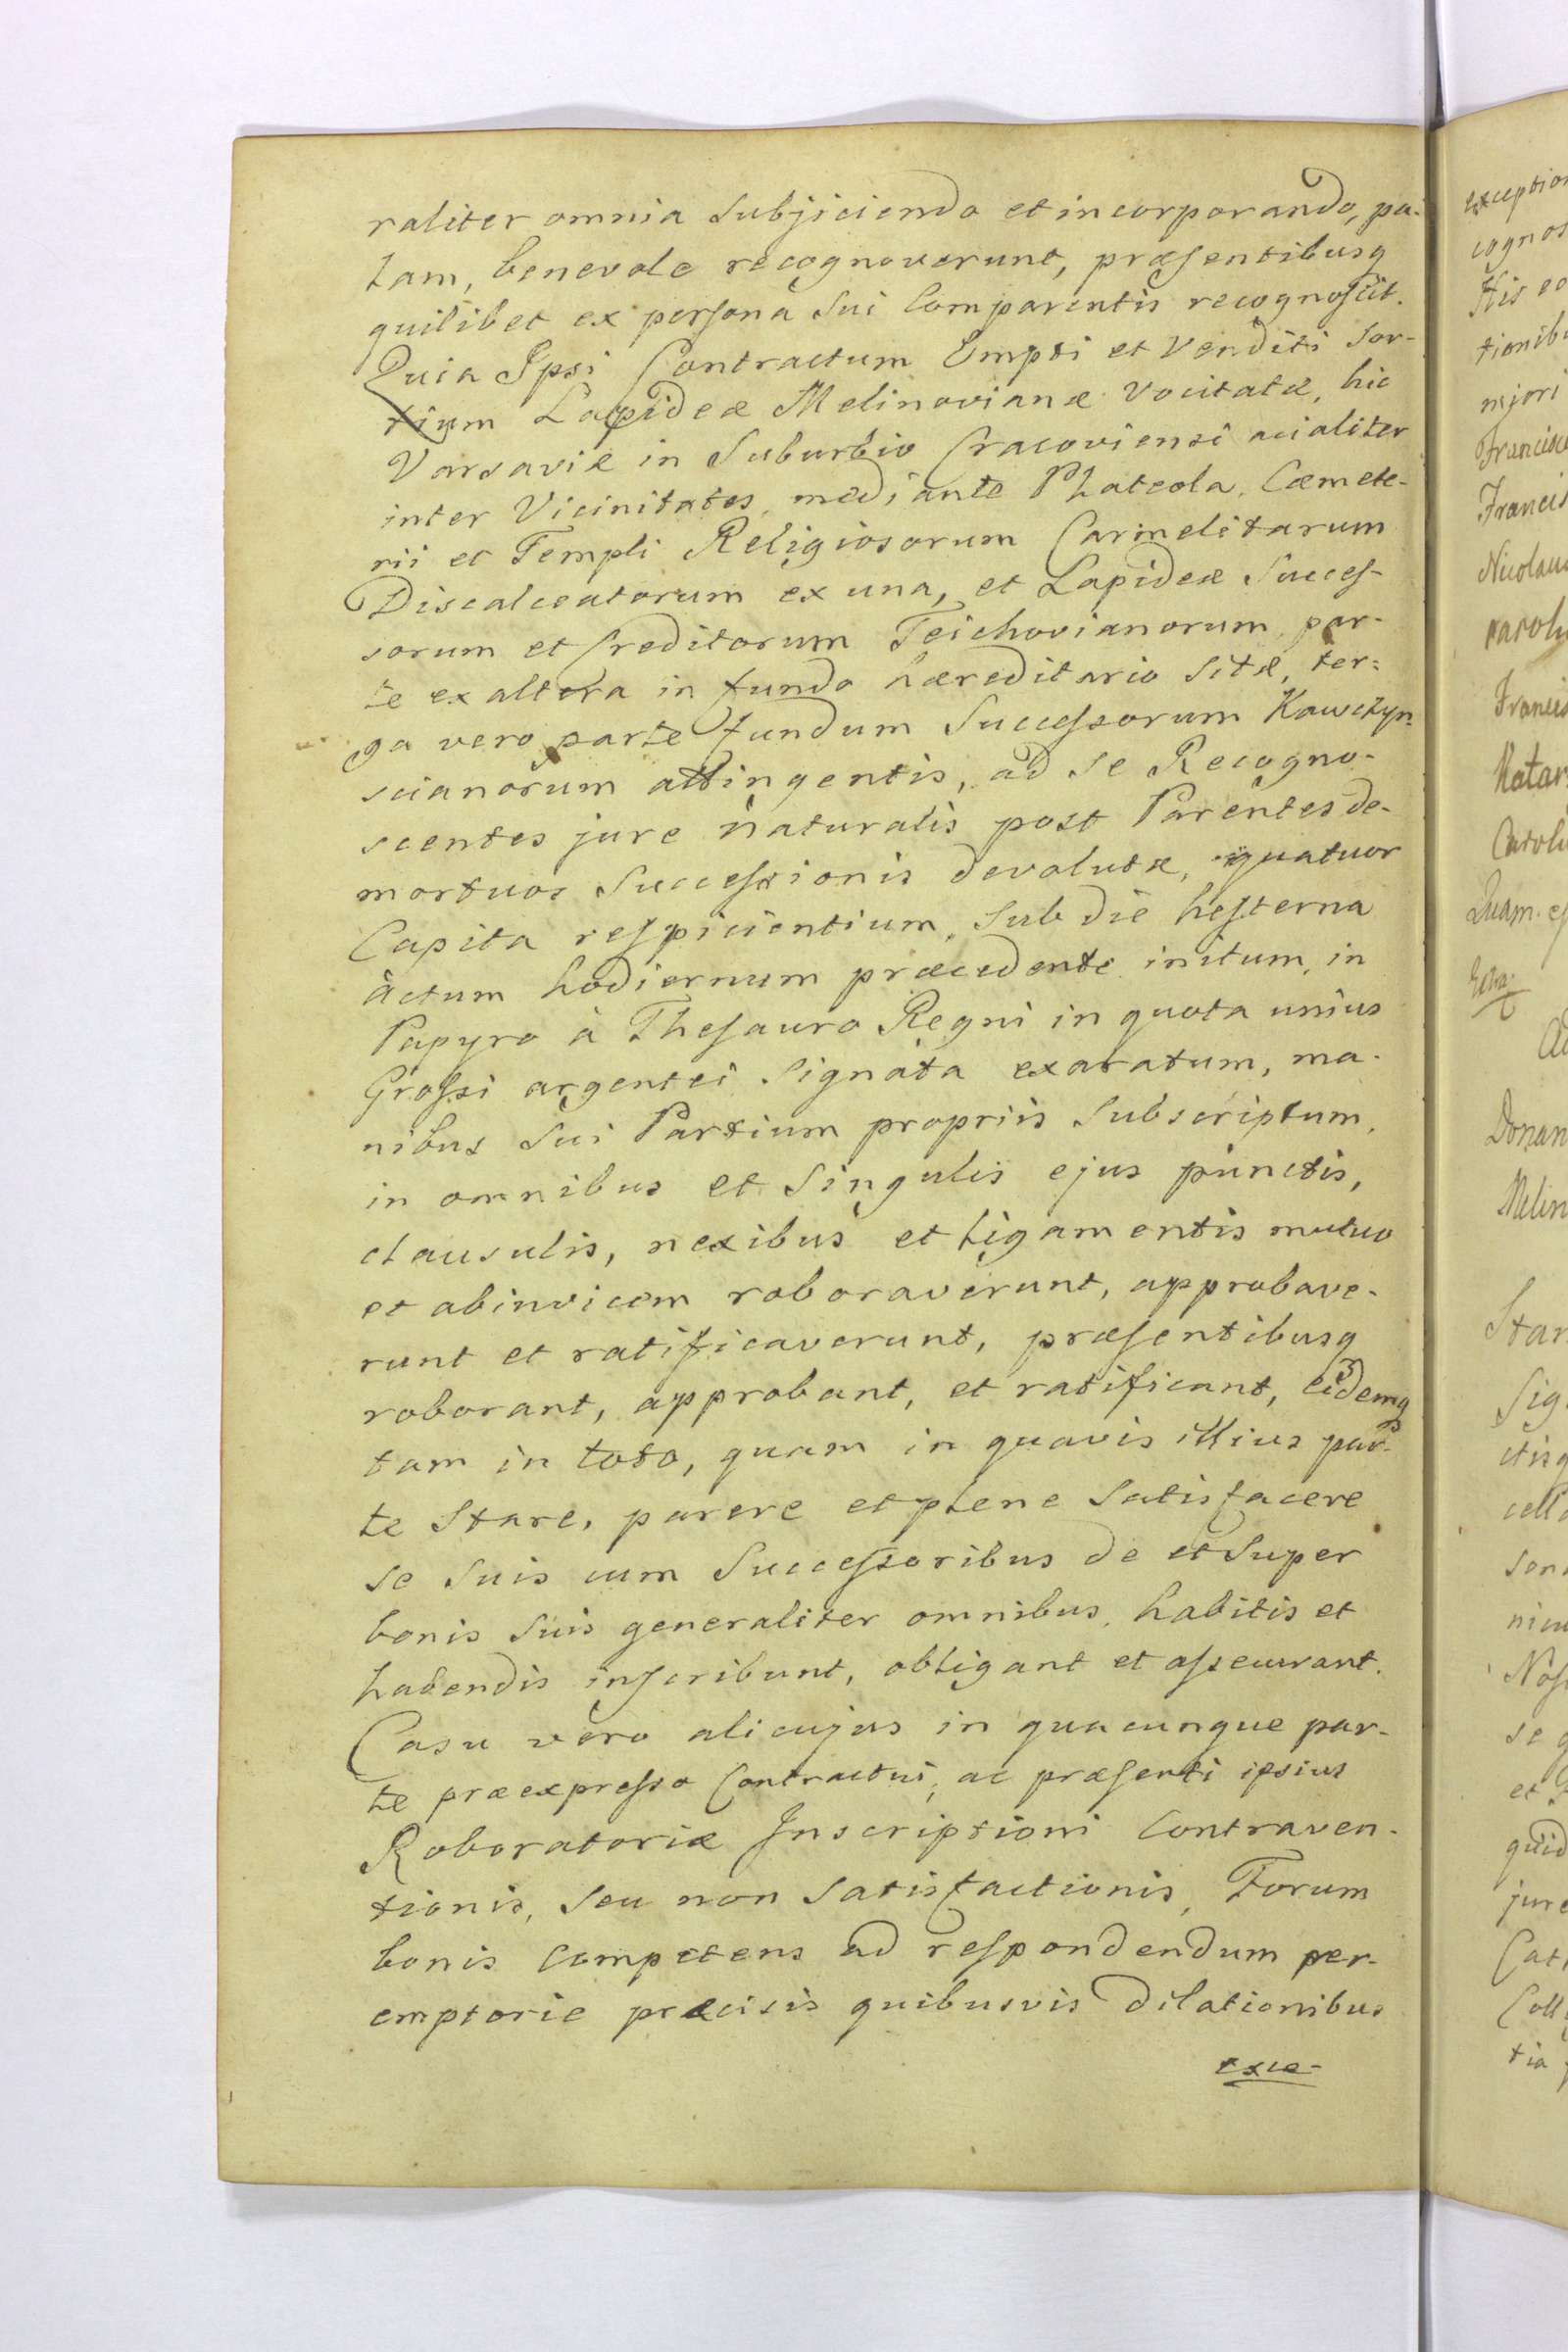 raliter omnia Subjiciendo et incorporando, pa-
lam, benevole recognoverunt, præsentibusq
quilibet ex persona sui Comparentis recognoscit.
Quia Ipsi Contractum Empti et Venditi Sor-
tium Lapideæ Melinovianæ vocitatæ, hic
Varsaviæ in Suburbio Cracoviensi acialiter
inter Vicinitates, mediante Plateola, Cæmete-
rii et Templi Religiosorum Carmelitarum
Discalceatorum ex una, et Lapideæ Succes-
sorum et Creditorum Teichovianorum, par-
te ex altera in fundo hæreditario Sitæ, ter-
ga vero parte fundum Successorum Kawczyn-
scianorum attingentis, ad se Recogno-
scentes jure naturalis post Parentes de-
mortuos Successionis devolutæ, quatuor
Capita respicientium, Sub die hesterna
àctum hodiernum præcedente initum, in
Papyro à Thesauro Regni in quota unius
Grossi argentei Signata exaratum, ma-
nibus Sui Partium propriis Subscriptum,
in omnibus et Singulis ejus punctis,
clausulis, nexibus et ligamentis mutuo
et abinvicem roboraverunt, approbave-
runt et ratificaverunt, præsentibusq
roborant, approbant, et ratificant, eidemq
tam in toto, quam in quavis illius par-
te Stare, parere et plene Satisfacere
se Suis cum Successoribus de et Super
bonis Suis generaliter omnibus, habitis et
habendis inscribunt, obligant et assecurant.
Casu vero alicujus in quacunque par-
te præexpresso Contractui, ac præsenti ipsius
Roboratoriæ Inscriptioni Contraven-
tionis, Seu non Satisfactionis, Forum
bonis Competens ad respondendum per-
emptorie præcisis quibusvis dilationibus
exce-
exception
cognos
His eo
tionib
Francis
Nicolaus
Carolu
Francis
Catar
Carolu
Quam
Donan
Melin
Star
Sig
Nos
se
et
quid
jure
Coll
tia